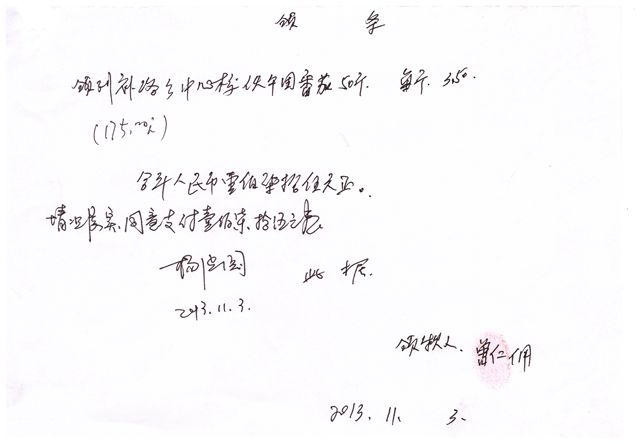 领 条
领到补洛乡中心校伙午团番茄50斤. 每斤. 3.50.
(175.00元)
合计人民币壹佰柒拾伍元正。
情况属实,同意支付壹佰柒拾伍元整
此据.
2013.11.3.
领款人. 曾仁佣
2013. 11. 3.